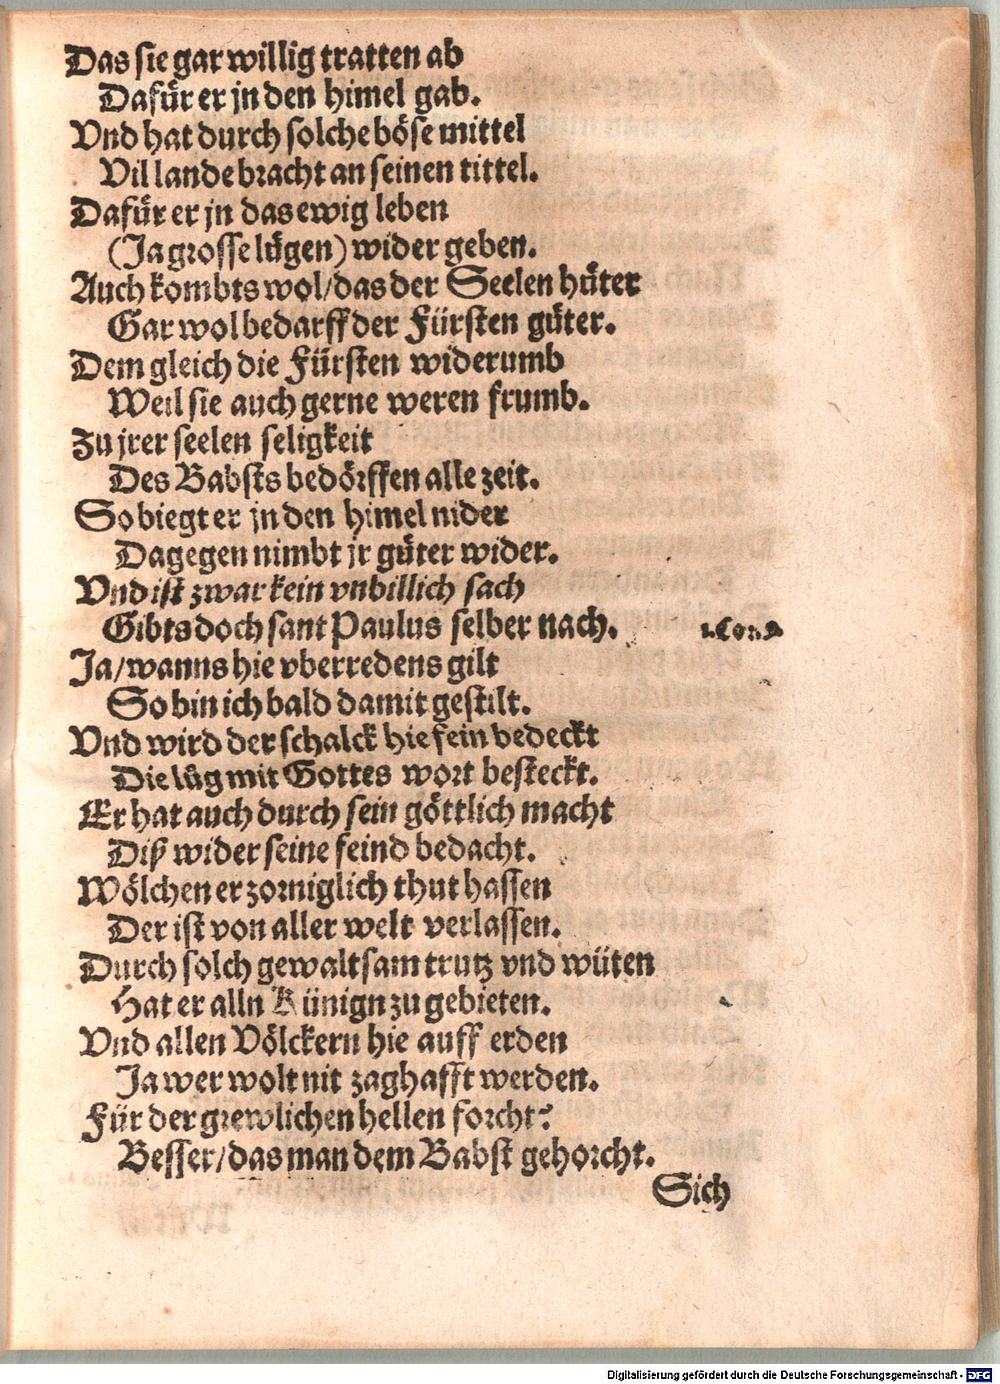 Das sie gar willig tratten ab
Dafür er jn den himel gab.
Vnd hat durch solche böse mittel
Vil lande bracht an seinen tittel.
Dafür er jn das ewig leben
(Ja grosse lügen) wider geben.
Auch kombts wol/das der Seelen hüter
Gar wol bedarff der Fürsten güter.
Dem gleich die Fürsten widerumb
Weil sie auch gerne weren frumb.
Zu jrer seelen seligkeit
Des Babsts bedörffen alle zeit.
So biegt er jn den himel nider
Dagegen nimbt jr güter wider.
Vnd ist zwar kein vnbillich sach
Gibts doch sant Paulus selber nach. 1.Cor.9
Ja/wanns hie vberredens gilt
So bin ich bald damit gestilt.
Vnd wird der schalck hie fein bedeckt
Die lüg mit Gottes wort besteckt.
Er hat auch durch sein göttlich macht
Diß wider seine feind bedacht.
Wölchen er zorniglich thut hassen
Der ist von aller welt verlassen.
Durch solch gewaltsam trutz vnd wüten
Hat er alln Künign zu gebieten.
Vnd allen Völckern hie auff erden
Ja wer wolt nit zaghafft werden.
Für der grewlichen hellen forcht?
Besser/das man dem Babst gehorcht.
Sich
Digitalisierung gefördert durch die Deutsche Forschungsgemeinschaft - DFG